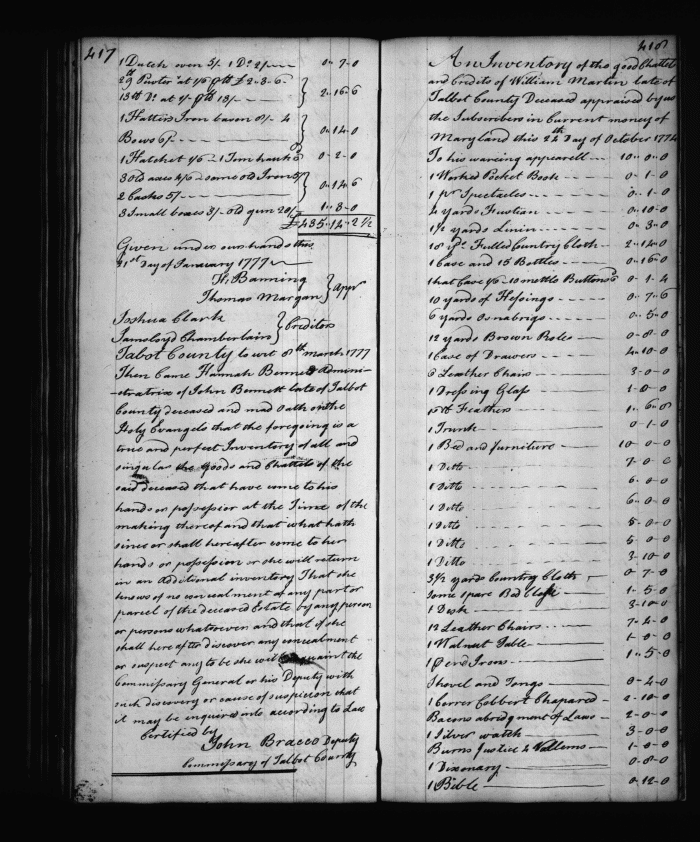 417
1 Dutch oven 5/. 1 Do. 2/. 0 .. 7 .. 0
29 Pewter at 1/6 £ 2..3..6
13 lb Do. at 1/. 13/ 2 .. 16 .. 6
1 Hatters Iron bason 8/. 4
Bows 6/. 0 .. 14 .. 0
1 Hatchet 1/6 .. 1 Tom hauk 6 0 .. 2 .. 0
3 old axes 4/6 some old Iron 5/
2 Casks 5/ 0 .. 14 .. 6
3 Small boxes 3/. old gun 20/ 1 .. 8 .. 0
£ 435 .. 14 .. 2 1/2
Given under our hands this
21st Day of January 1777
H. Banning
Thomas Margan } Appr
Joshua Clark
Jamsloyd Chamberlain } Creditors
Talbot County to wit 8th march 1777
Then Came Hannah Bennett Admini-
-stratrix of John Bennett late of Talbot
County deceased and mad Oath on the
Holy Evangels that the foregoing is a
true and perfect Inventory of all and
singular the Goods and Chattels of the
said deceased that have come to his
hands or possession at the Time of the
making thereof and that what hath
since or shall hereafter come to her
hands or possession or she will return
in an Additional inventory That she
knows of no concealment of any part or
parcel of the deceased Estate by any person
or persons whatsoever and that if she
shall hereafter discover any concealment
or suspect any to be she will acquaint the
Commissary General or his Deputy with
such discovery or cause of suspicion that
it may be enquired into according to Law
Certified by
John Bracco Deputy
Commissary of Talbot County
418
An Inventory of the good Chattels
and Credits of William Martin late of
Talbot County Deceased appraised by us
the Subscribers in Current money of
Maryland this 24th Day of October 1774
To his wareing appearell 10 .. 0 .. 0
1 Worked Pocket Book 0 .. 1 .. 0
1 pr Spectacles 0 .. 1 .. 0
4 yards Fustian 0 .. 10 .. 0
1 1/2 yards Linin 0 .. 3 .. 0
18 yds Fulled Cuntry Cloth 2 .. 14 .. 0
1 Case and 15 Bottles 0 .. 16 .. 0
1 hat Case 1/. 10 mettle Buttons 6 0 .. 1 .. 4
10 yards of Hessings 0 .. 7 .. 6
6 yards Osnabrigs 0 .. 5 .. 0
12 yards Brown Roles 0 .. 8 .. 0
1 Case of Drawers 4 .. 10 .. 0
6 Leather Chairs 3 .. 0 .. 0
1 Dressing Glass 1 .. 0 .. 0
15 lb Feathers 1 .. 6 .. 8
1 Trunk 0 .. 1 .. 0
1 Bed and furniture 10 .. 0 .. 0
1 Ditto 7 .. 0 .. 0
1 Ditto 6 .. 0 .. 0
1 Ditto 6 .. 0 .. 0
1 Ditto 5 .. 0 .. 0
1 Ditto 5 .. 0 .. 0
1 Ditto 3 .. 10 .. 0
3 1/2 yards Country Cloth 0 .. 7 .. 0
some spare Bed Cloth 1 .. 5 .. 0
1 Desk 3 .. 10 .. 0
12 Leather Chairs 7 .. 4 .. 0
1 Walnut Table 1 .. 0 .. 0
1 Irons 1 .. 5 .. 0
Shovel and Tongs 0 .. 4 .. 0
1 Corner Cobbert Chapared 2 .. 10 .. 0
Bacons abridgment of Laws 2 .. 0 .. 0
1 Silver watch 3 .. 0 .. 0
Burns Justice 4 Vollems 1 .. 0 .. 0
1 Dixonary 0 .. 8 .. 0
1 Bible 0 .. 12 .. 0